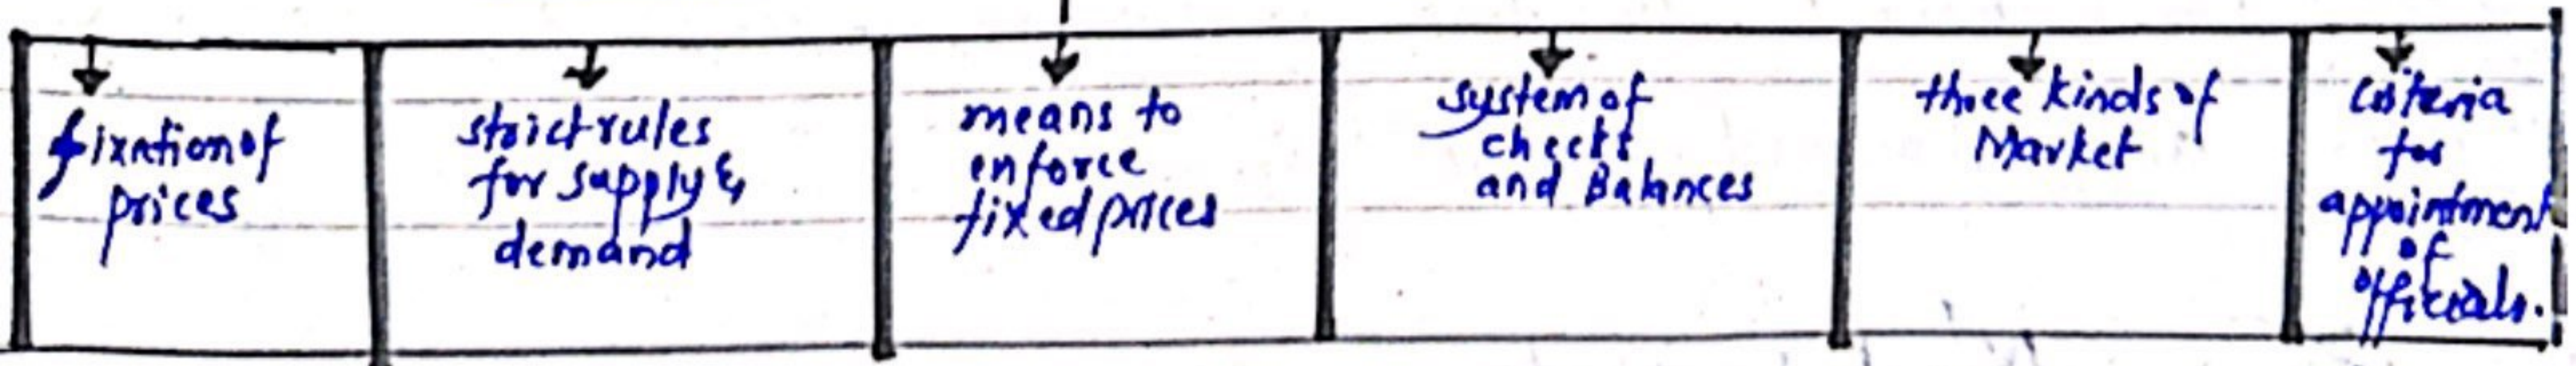 fixation of
prices
strict rules
for supply &
demand
means to
enforce
fixed prices
system of
checks
and Balances
three kinds of
Market
criteria
for
appointment
of
officials.